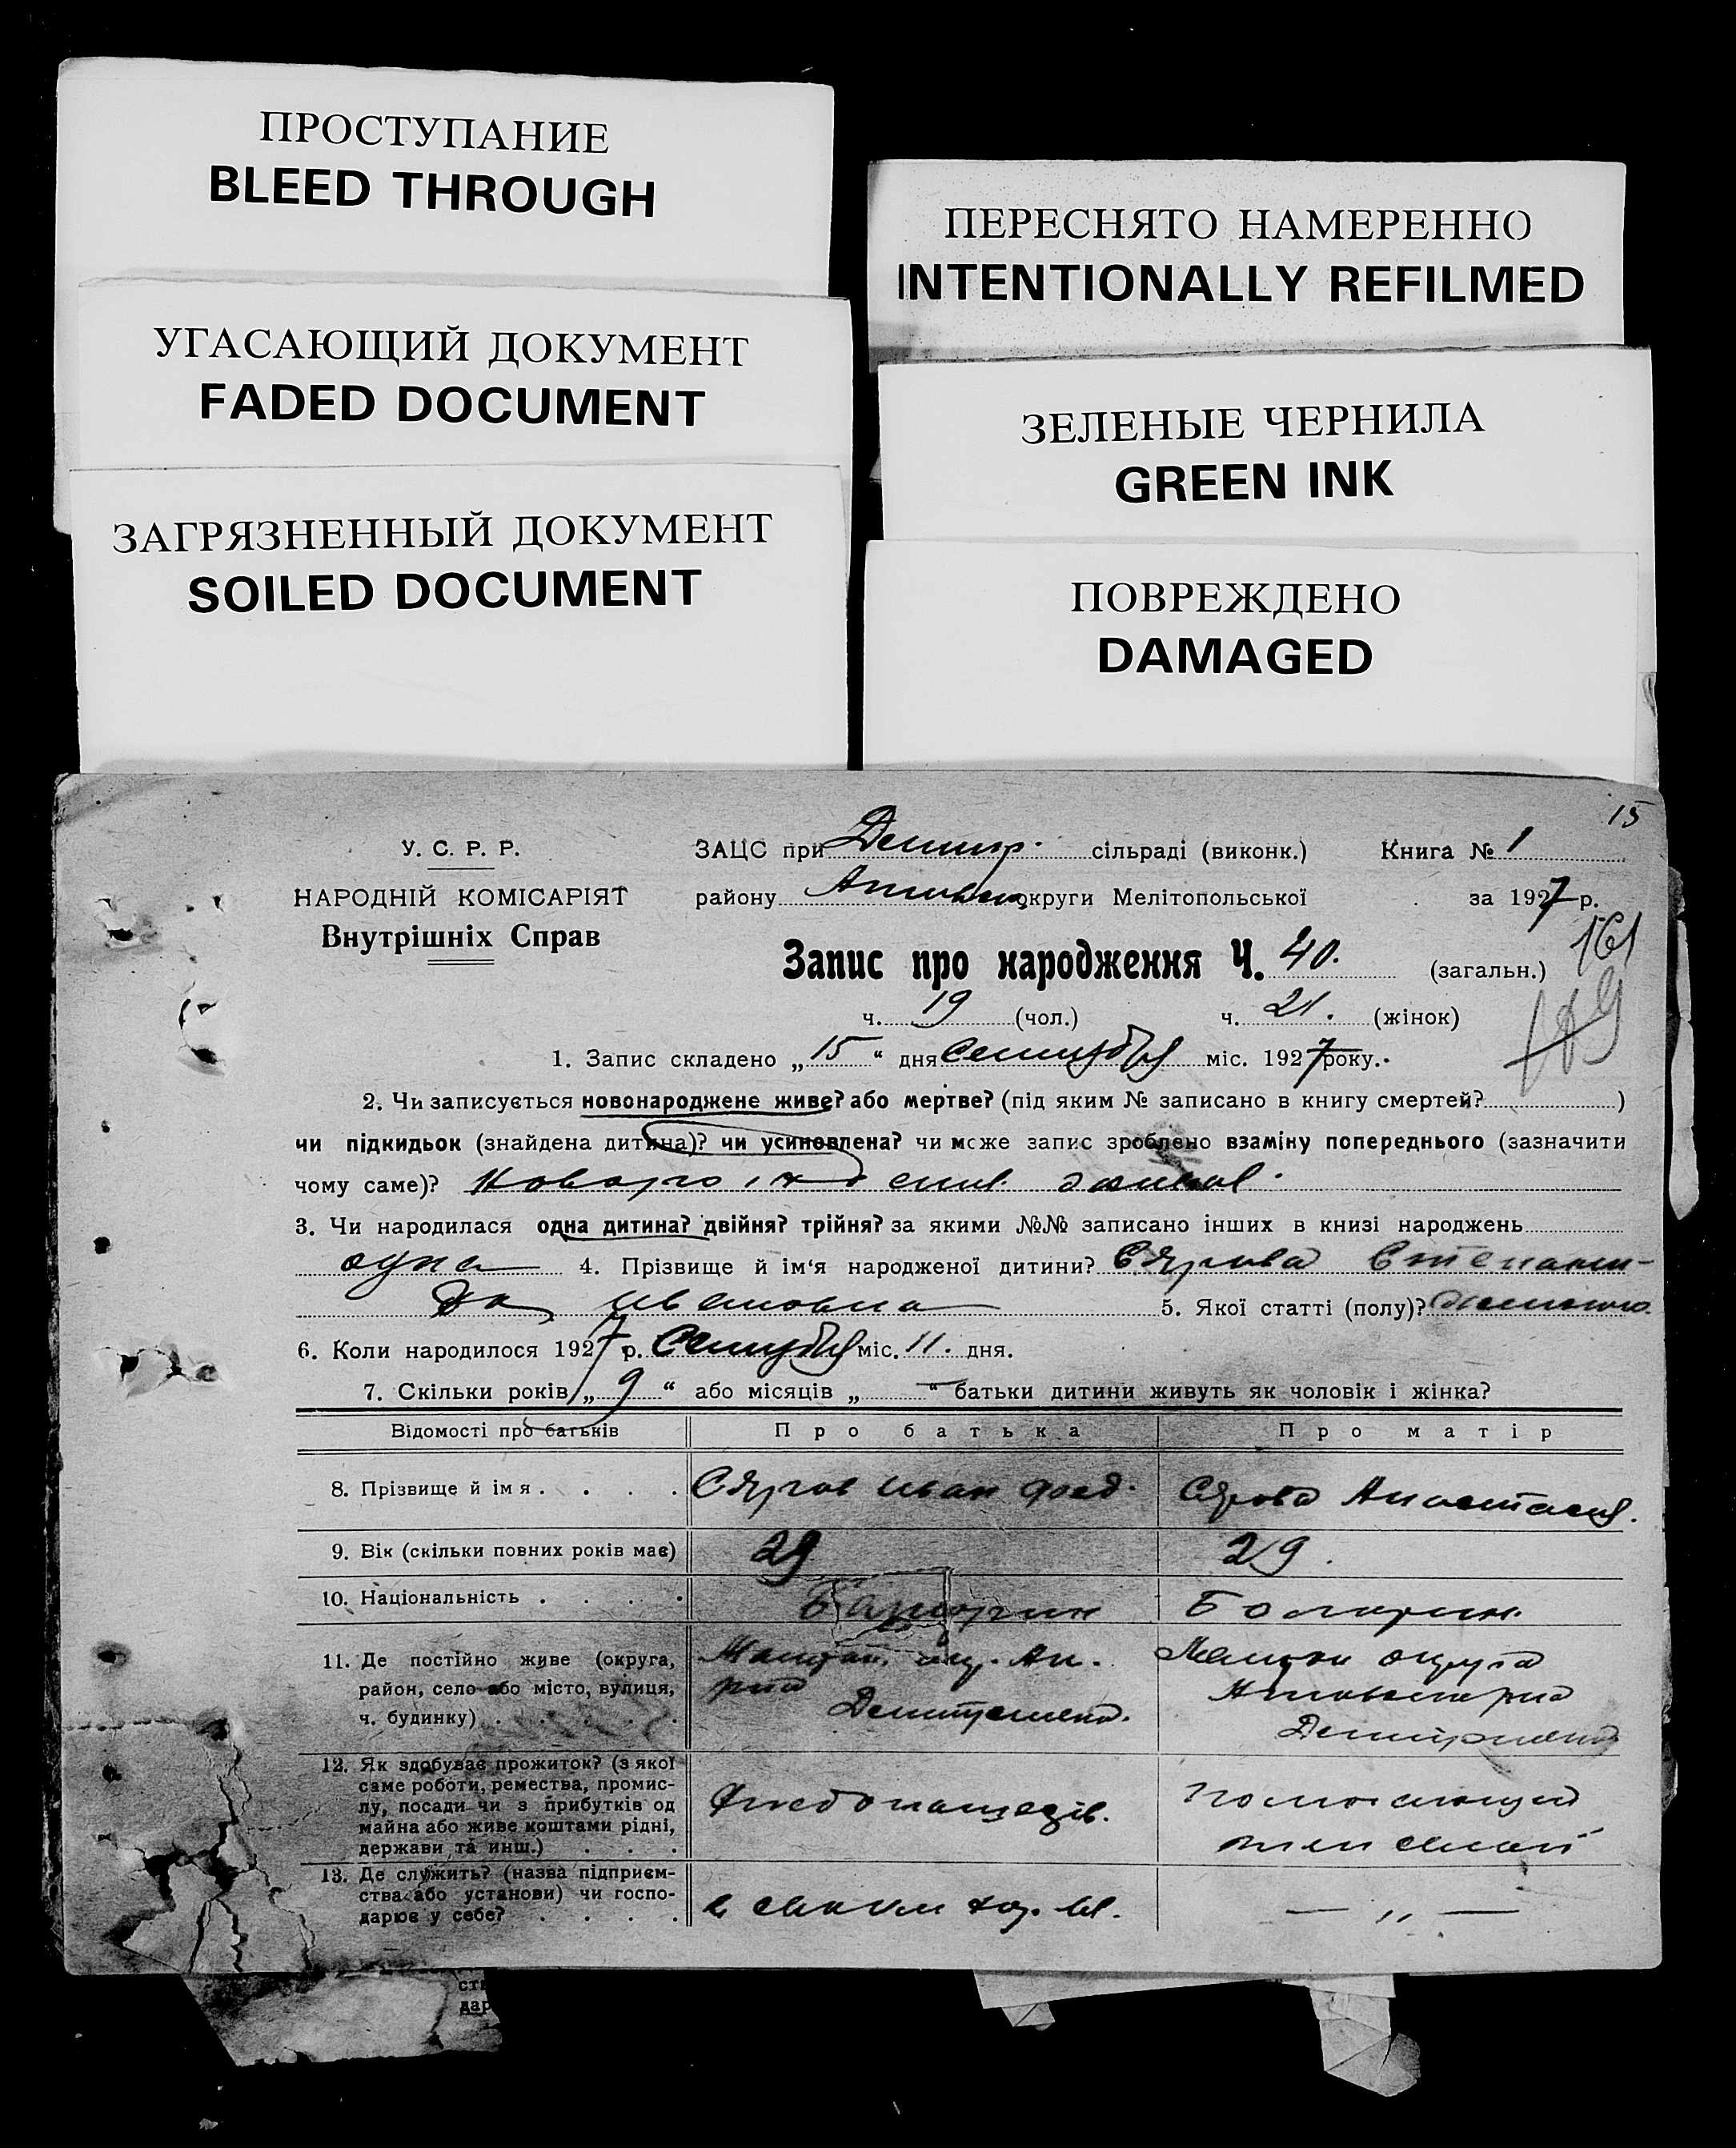 ПРОСТУПАНИЕ
BLEED THROUGH
УГАСАЮЩИЙ ДОКУМЕНТ
FADED DOCUMENT
ЗАГРЯЗНЕННЫЙ ДОКУМЕНТ
SOILED DOCUMENT
ПЕРЕСНЯТО НАМЕРЕННО
INTENTIONALLY REFILMED
ЗЕЛЕНЫЕ ЧЕРНИЛА
GREEN INK
ПОВРЕЖДЕНО
DAMAGED
15
У. С. Р. Р.
НАРОДНІЙ КОМІСАРІЯТ
Внутрішніх Справ
ЗАЦС при сільраді (виконк.) Книга № 1
району округи Мелітопольської за 1927 р.
161
Запис про народження Ч. 40. (загальн.)
ч. 19 (чол.) ч. 21. (жінок)
1. Запис складено „15“ дня Сентября міс. 1927 року.
2. Чи записується новонароджене живе? або мертве? (під яким № записано в книгу смертей? )
чи підкидьок (знайдена дитина)? чи усиновлена? чи може запис зроблено взаміну попереднього (зазначити
чому саме)?
3. Чи народилася одна дитина? двійня? трійня? за якими №№ записано інших в книзі народжень
одна 4. Прізвище й ім'я народженої дитини? Степани-
да Ивановна 5. Якої статті (полу)?
6. Коли народилося 1927 р. Сентября міс. 11. дня.
7. Скільки років „9“ або місяців „—“ батьки дитини живуть як чоловік і жінка?
Відомості про батьків Про батька Про матір
8. Прізвище й імя . . . . Иван Фоед. Анастасия.
9. Вік (скільки повних років має) 29 29.
10. Національність . . . . Болгарин.
11. Де постійно живе (округа,
район, село або місто, вулиця,
ч. будинку) . . . . .
округа
12. Як здобуває прожиток? (з якої
саме роботи, ремества, промис-
лу, посади чи з прибутків од
майна або живе коштами рідні,
держави та инш.) . . .
13. Де служить? (назва підприєм-
ства або установи) чи госпо-
дарює у себе? . . . .
в своим — „ —
ств
дар